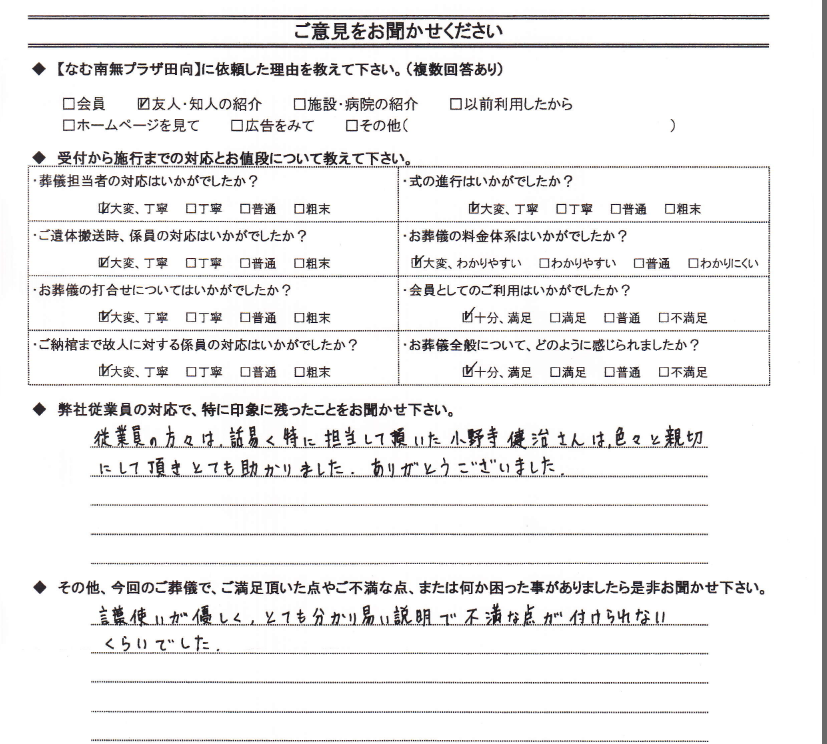 ご意見をお聞かせください
◆ 【なむ南無プラザ田向】に依頼した理由を教えて下さい。(複数回答あり)
□会員 ☑友人・知人の紹介 □施設・病院の紹介 □以前利用したから
□ホームページを見て □広告をみて □その他( )
◆ 受付から施行までの対応とお値段について教えて下さい。
・葬儀担当者の対応はいかがでしたか？
☑大変、丁寧 □丁寧 □普通 □粗末
・式の進行はいかがでしたか？
☑大変、丁寧 □丁寧 □普通 □粗末
・ご遺体搬送時、係員の対応はいかがでしたか？
☑大変、丁寧 □丁寧 □普通 □粗末
・お葬儀の料金体系はいかがでしたか？
☑大変、わかりやすい □わかりやすい □普通 □わかりにくい
・お葬儀の打合せについてはいかがでしたか？
☑大変、丁寧 □丁寧 □普通 □粗末
・会員としてのご利用はいかがでしたか？
☑十分、満足 □満足 □普通 □不満足
・ご納棺まで故人に対する係員の対応はいかがでしたか？
☑大変、丁寧 □丁寧 □普通 □粗末
・お葬儀全般について、どのように感じられましたか？
☑十分、満足 □満足 □普通 □不満足
◆ 弊社従業員の対応で、特に印象に残ったことをお聞かせ下さい。
従業員の方々は、話易く特に担当して頂いた小野寺健治さんは、色々と親切
にして頂きとても助かりました。ありがとうございました。
◆ その他、今回のご葬儀で、ご満足頂いた点やご不満な点、または何か困った事がありましたら是非お聞かせ下さい。
言葉使いが優しく、とても分かり易い説明で不満な点が付けられない
くらいでした。